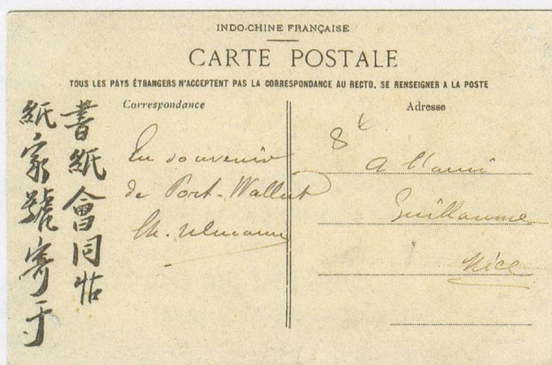 INDO-CHINE FRANÇAISE
CARTE POSTALE
TOUS LES PAYS ÉTRANGERS N'ACCEPTENT PAS LA CORRESPONDANCE AU RECTO, SE RENSEIGNER A LA POSTE
Correspondance
Adresse
書紙會同怗
紙家號寄于
En souvenir
de Port-Wallut
Ch. Ulmann
A l'ami
Guillaume
"
Nice